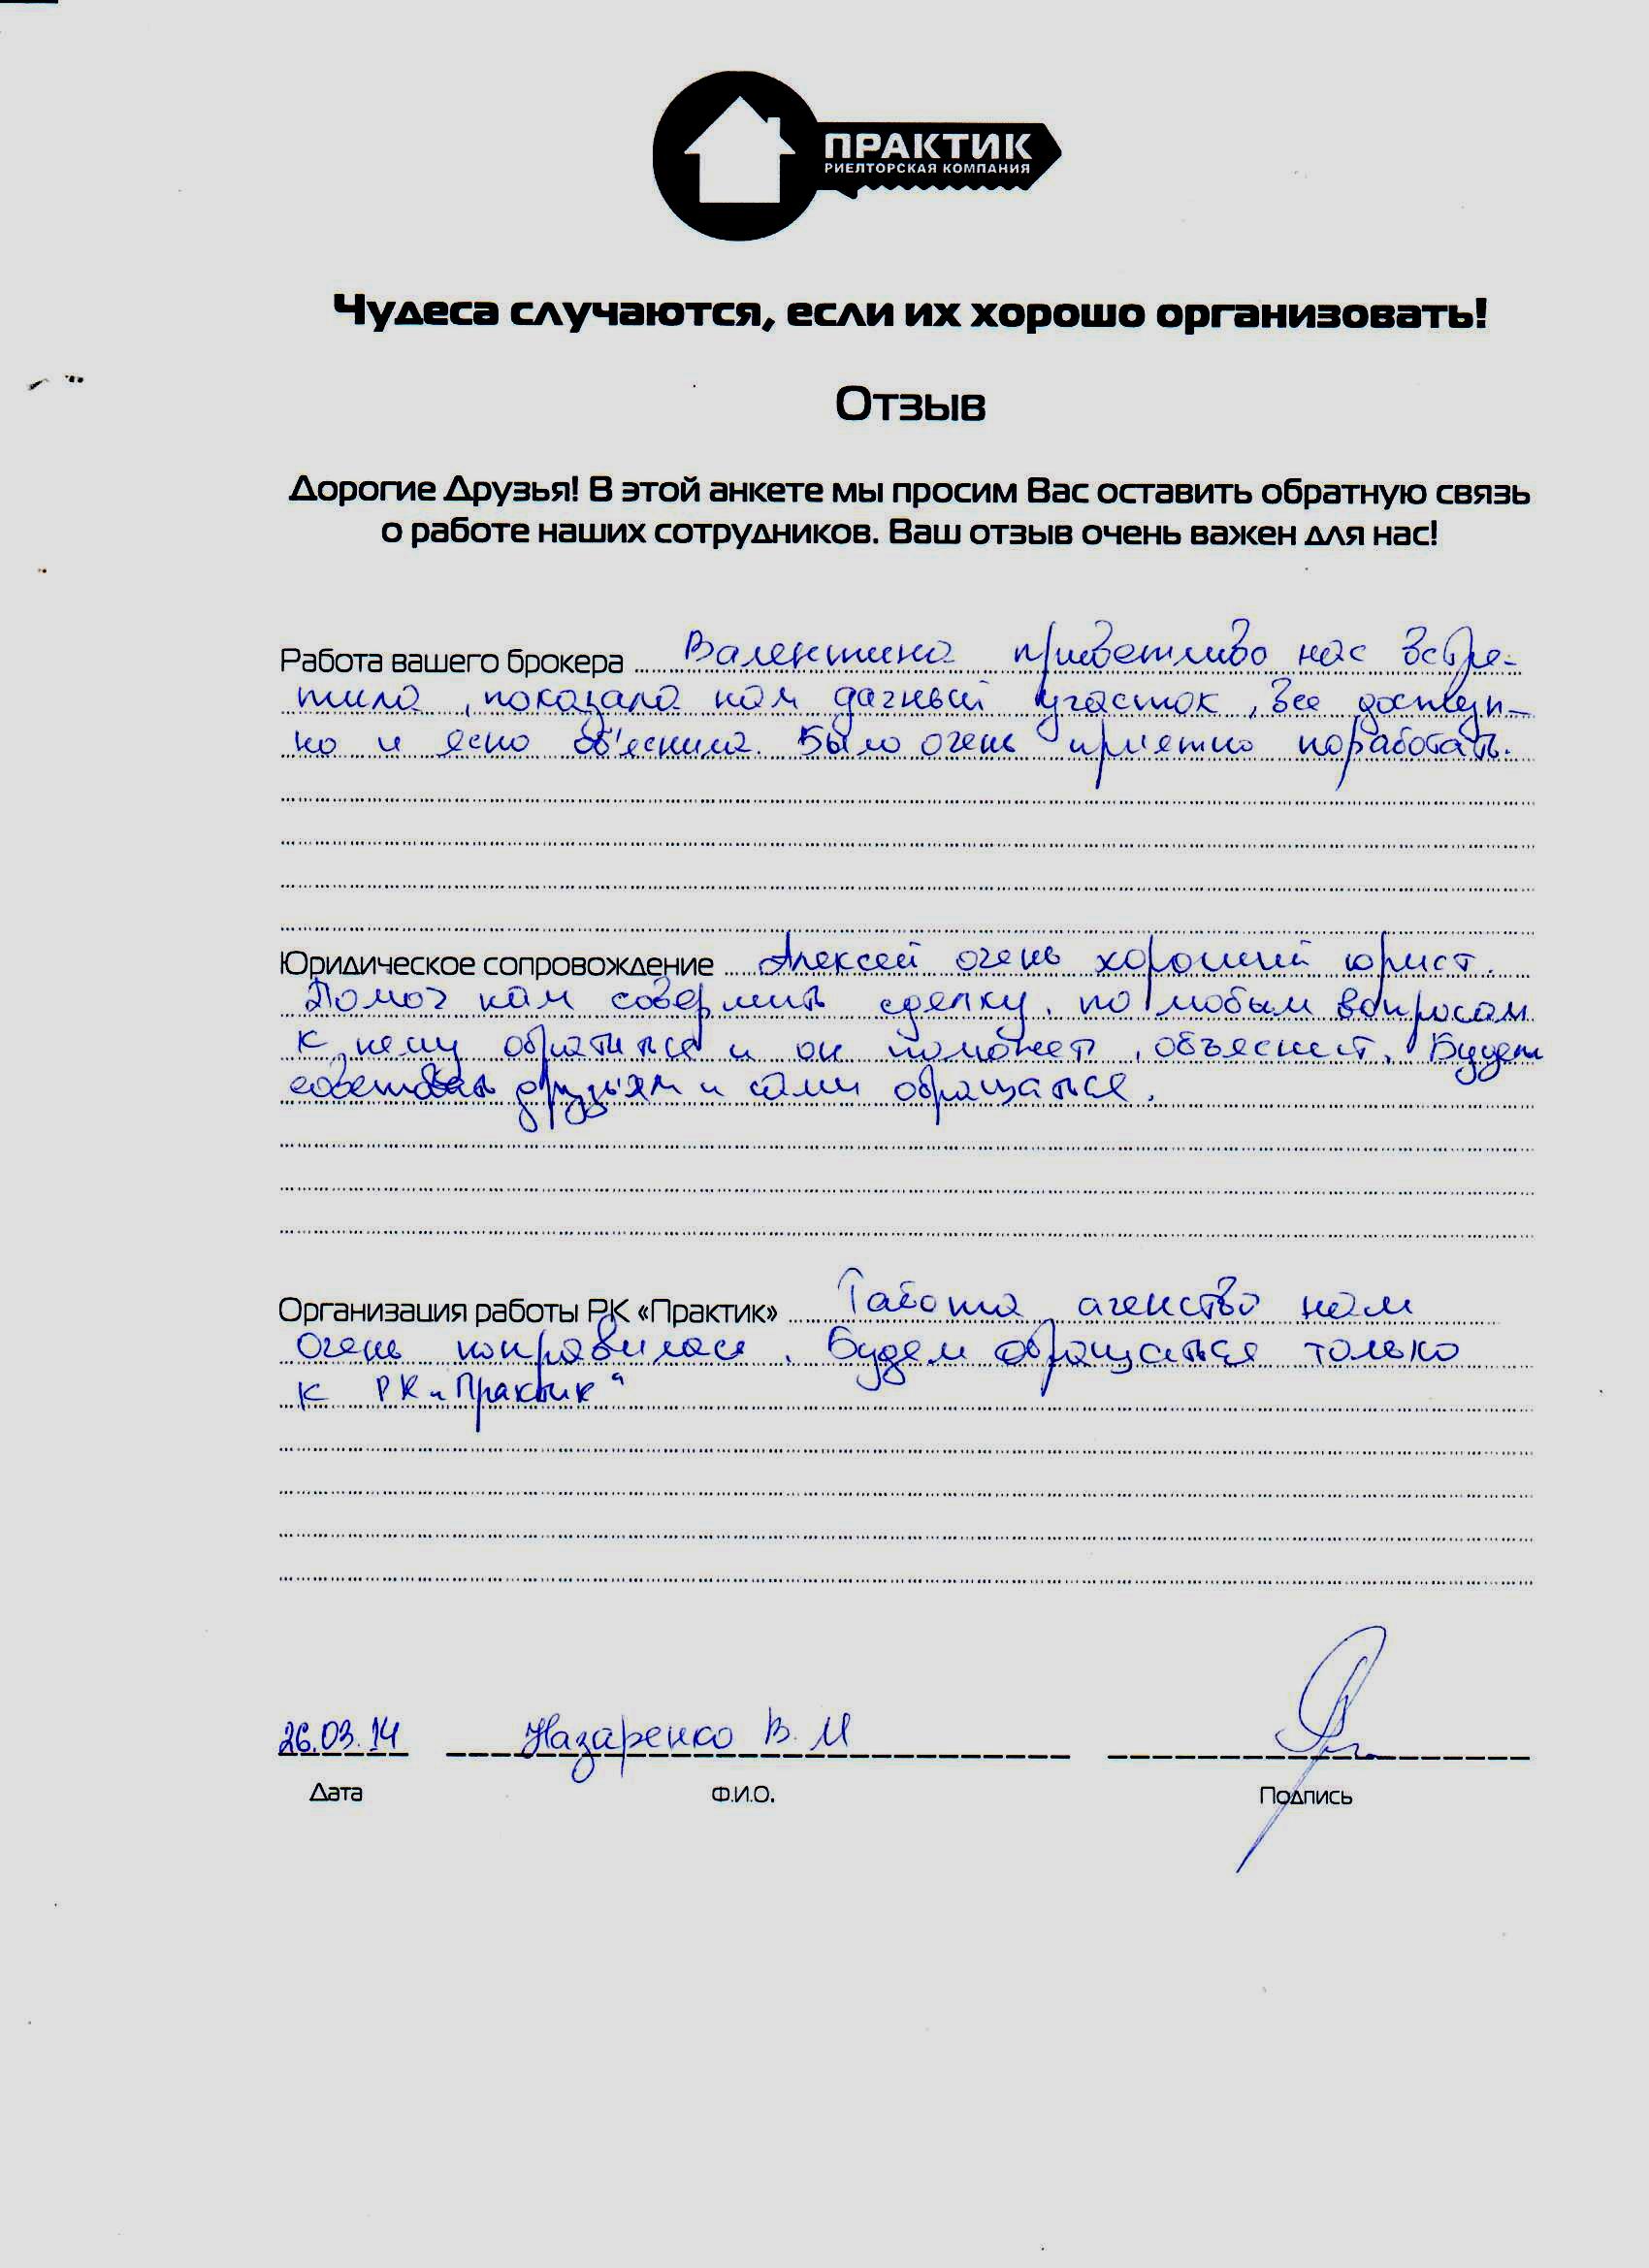 ПРАКТИК
РИЕЛТОРСКАЯ КОМПАНИЯ
Чудеса случаются, если их хорошо организовать!
Отзыв
Дорогие Друзья! В этой анкете мы просим Вас оставить обратную связь
о работе наших сотрудников. Ваш отзыв очень важен для нас!
Работа вашего брокера Валентина приветливо нас встре-
тила, показала нам дачный участок, все доступ-
но и ясно об'яснила. Было очень приятно поработать.
Юридическое сопровождение Алексей очень хороший юрист.
Помог нам совершить сделку, по любым вопросам
к нему обратиться и он поможет, объяснит. Будем
советовать друзьям и сами обращаться.
Организация работы РК «Практик» Работа агенство нам
очень понравилась. Будем обращаться только
к РК „Практик“
26.03.14 Назаренко В. М
Дата Ф.И.О. Подпись